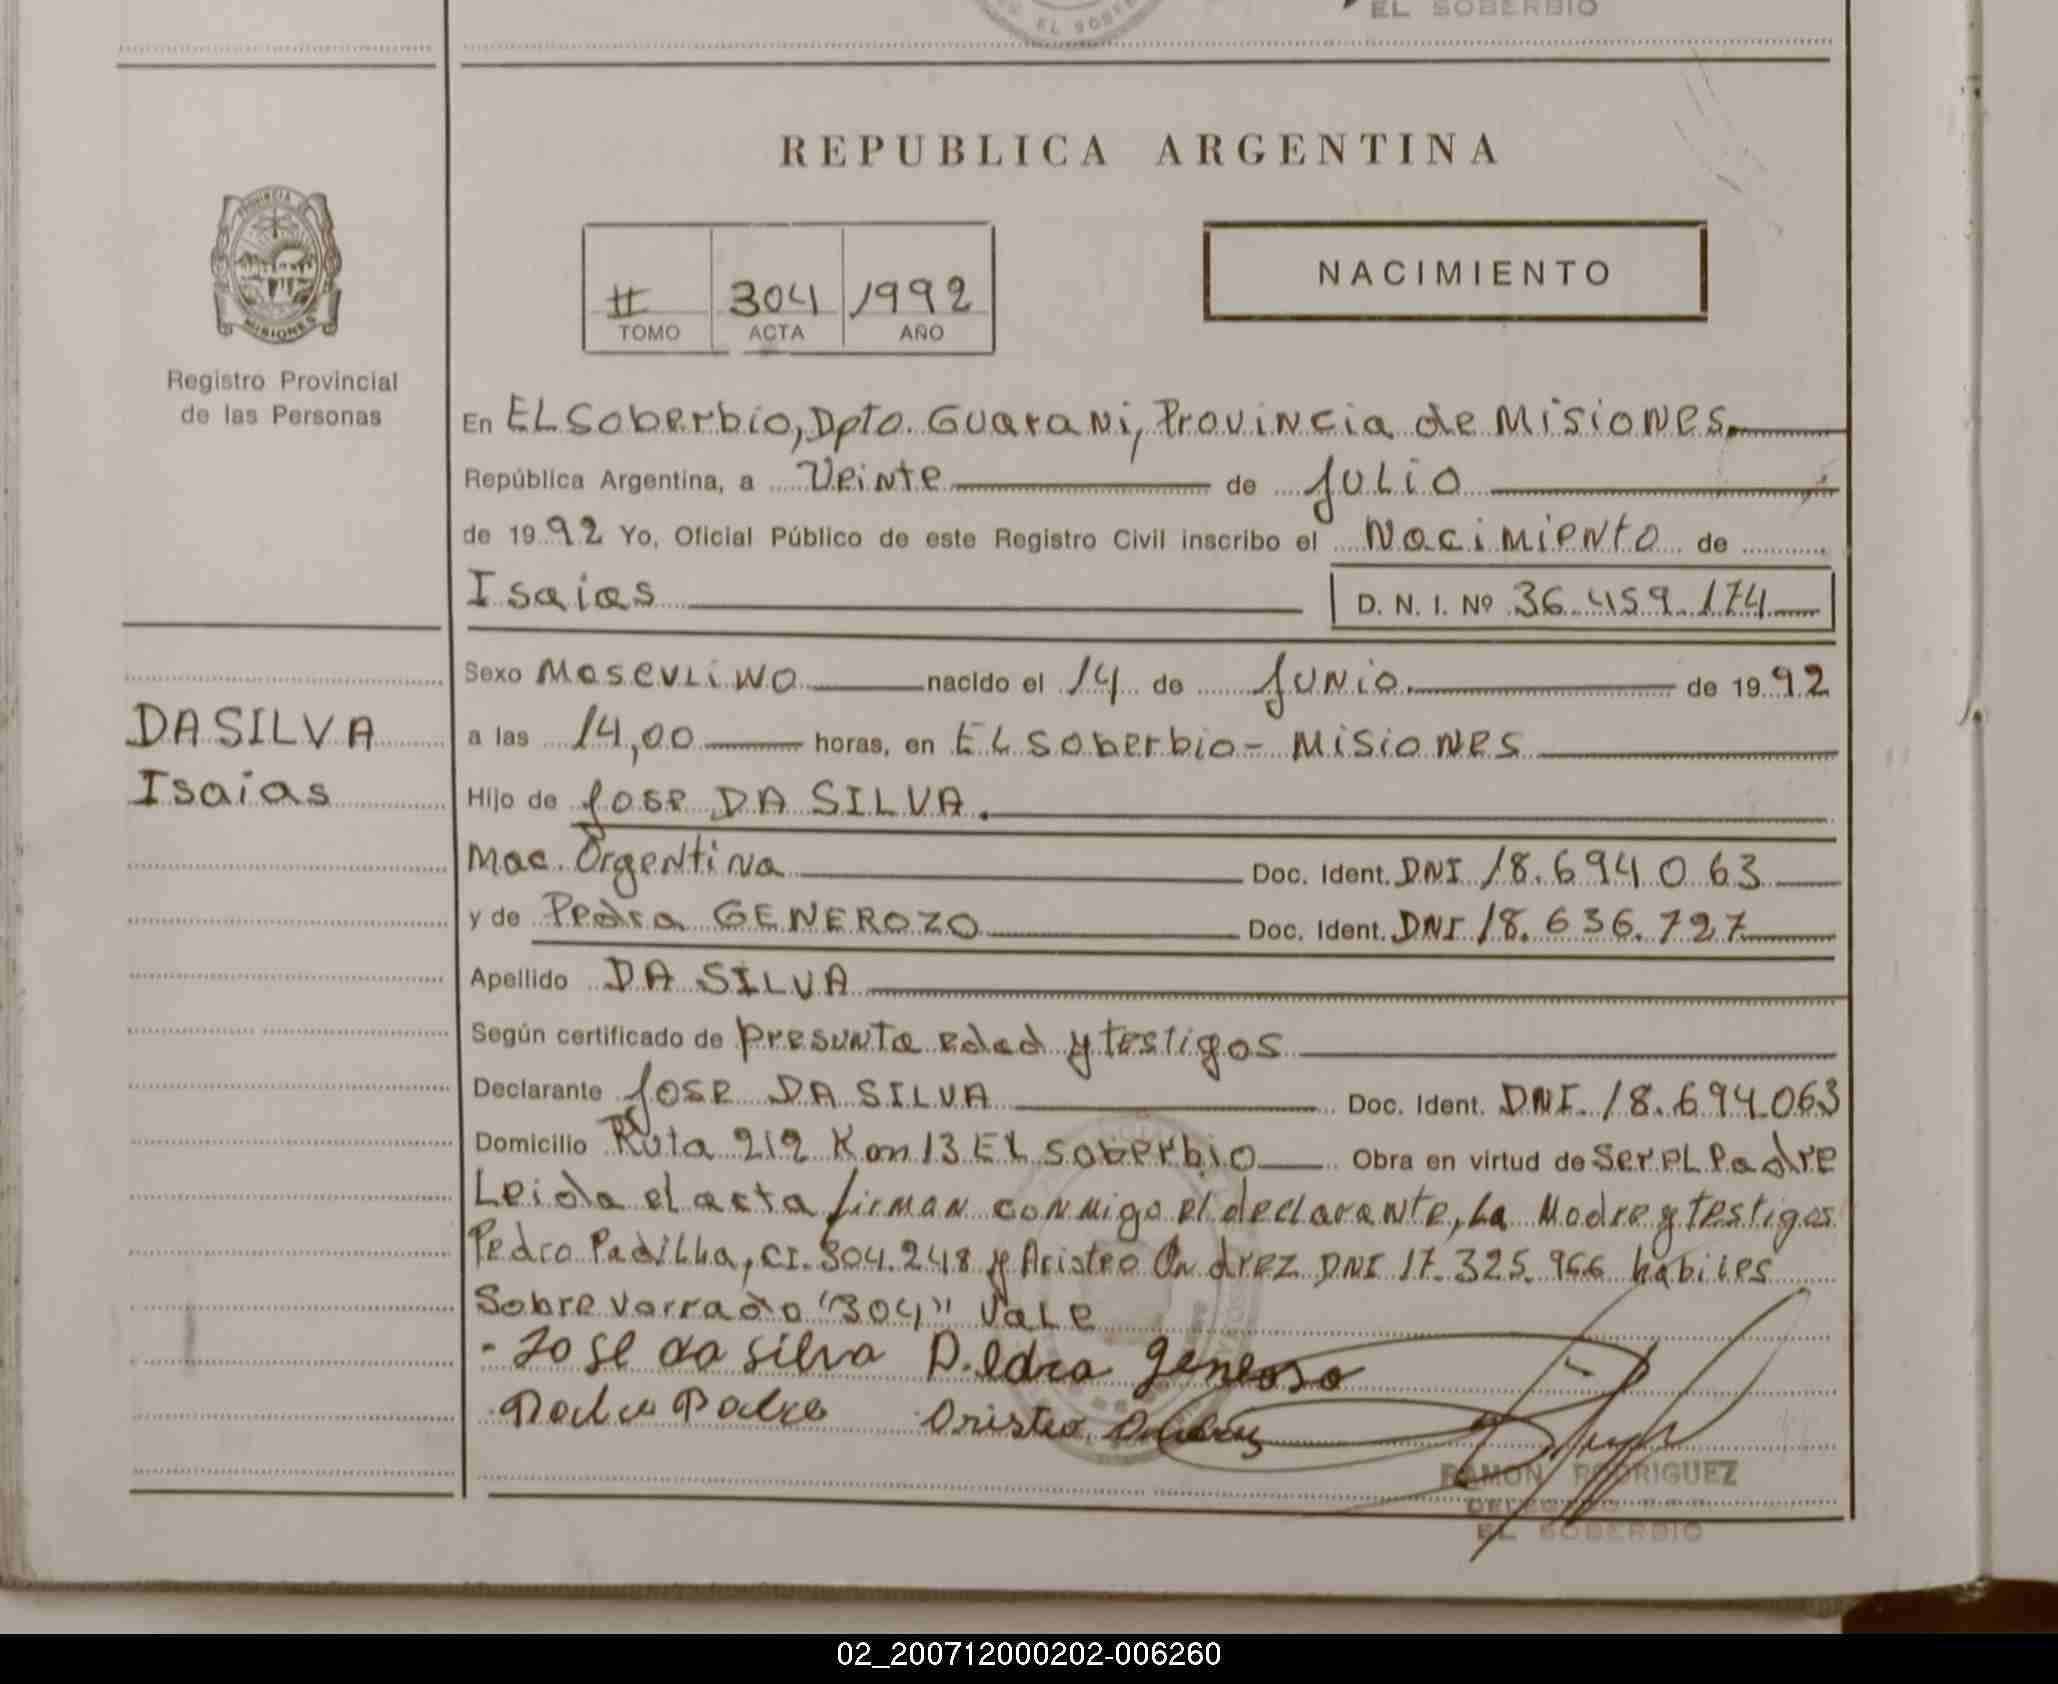 EL SOBERBIO
REPUBLICA ARGENTINA
PROVINCIA DE
MISIONES
Registro Provincial
de las Personas
II 304 1992
TOMO ACTA AÑO
NACIMIENTO
En EL Soberbio, Dpto. Guarani, Provincia de Misiones.
República Argentina, a Veinte de Julio
de 1992 Yo, Oficial Público de este Registro Civil inscribo el Nacimiento de
Isaias D. N. I. Nº 36.459.174
DA SILVA
Isaias
Sexo Masculino nacido el 14 de Junio de 1992
a las 14,00 horas, en EL Soberbio - Misiones
Hijo de Jose DA SILVA.
Nac. Argentina Doc. Ident. DNI 18.694.063
y de Pedra GENEROZO Doc. Ident. DNI 18.636.727
Apellido DA SILVA
Según certificado de presunta edad y testigos
Declarante Jose DA SILVA Doc. Ident. DNI. 18.694.063
Domicilio Ruta 212 Km 13 EL Soberbio Obra en virtud de Ser el Padre
Leida el acta firman conmigo el declarante, La Madre y testigos
Pedro Padilha, CI. 304.248 y Aristeo Andrez DNI 17.325.966 habiles
Sobre varrado "304" Vale
- Jose da silva Pedra generoso
Aristeo
RAMON RODRIGUEZ
DELEGADO
EL SOBERBIO
02_200712000202-006260